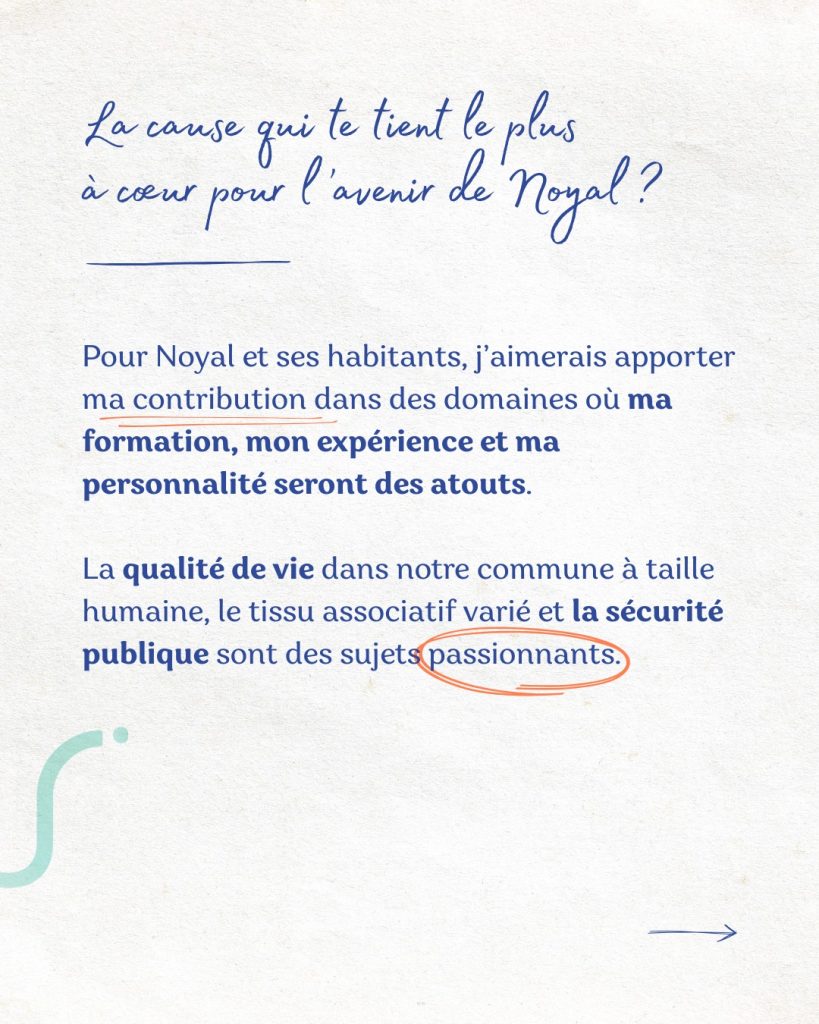 La cause qui te tient le plus
à cœur pour l'avenir de Noyal ?
Pour Noyal et ses habitants, j’aimerais apporter
ma contribution dans des domaines où ma
formation, mon expérience et ma
personnalité seront des atouts.
La qualité de vie dans notre commune à taille
humaine, le tissu associatif varié et la sécurité
publique sont des sujets passionnants.